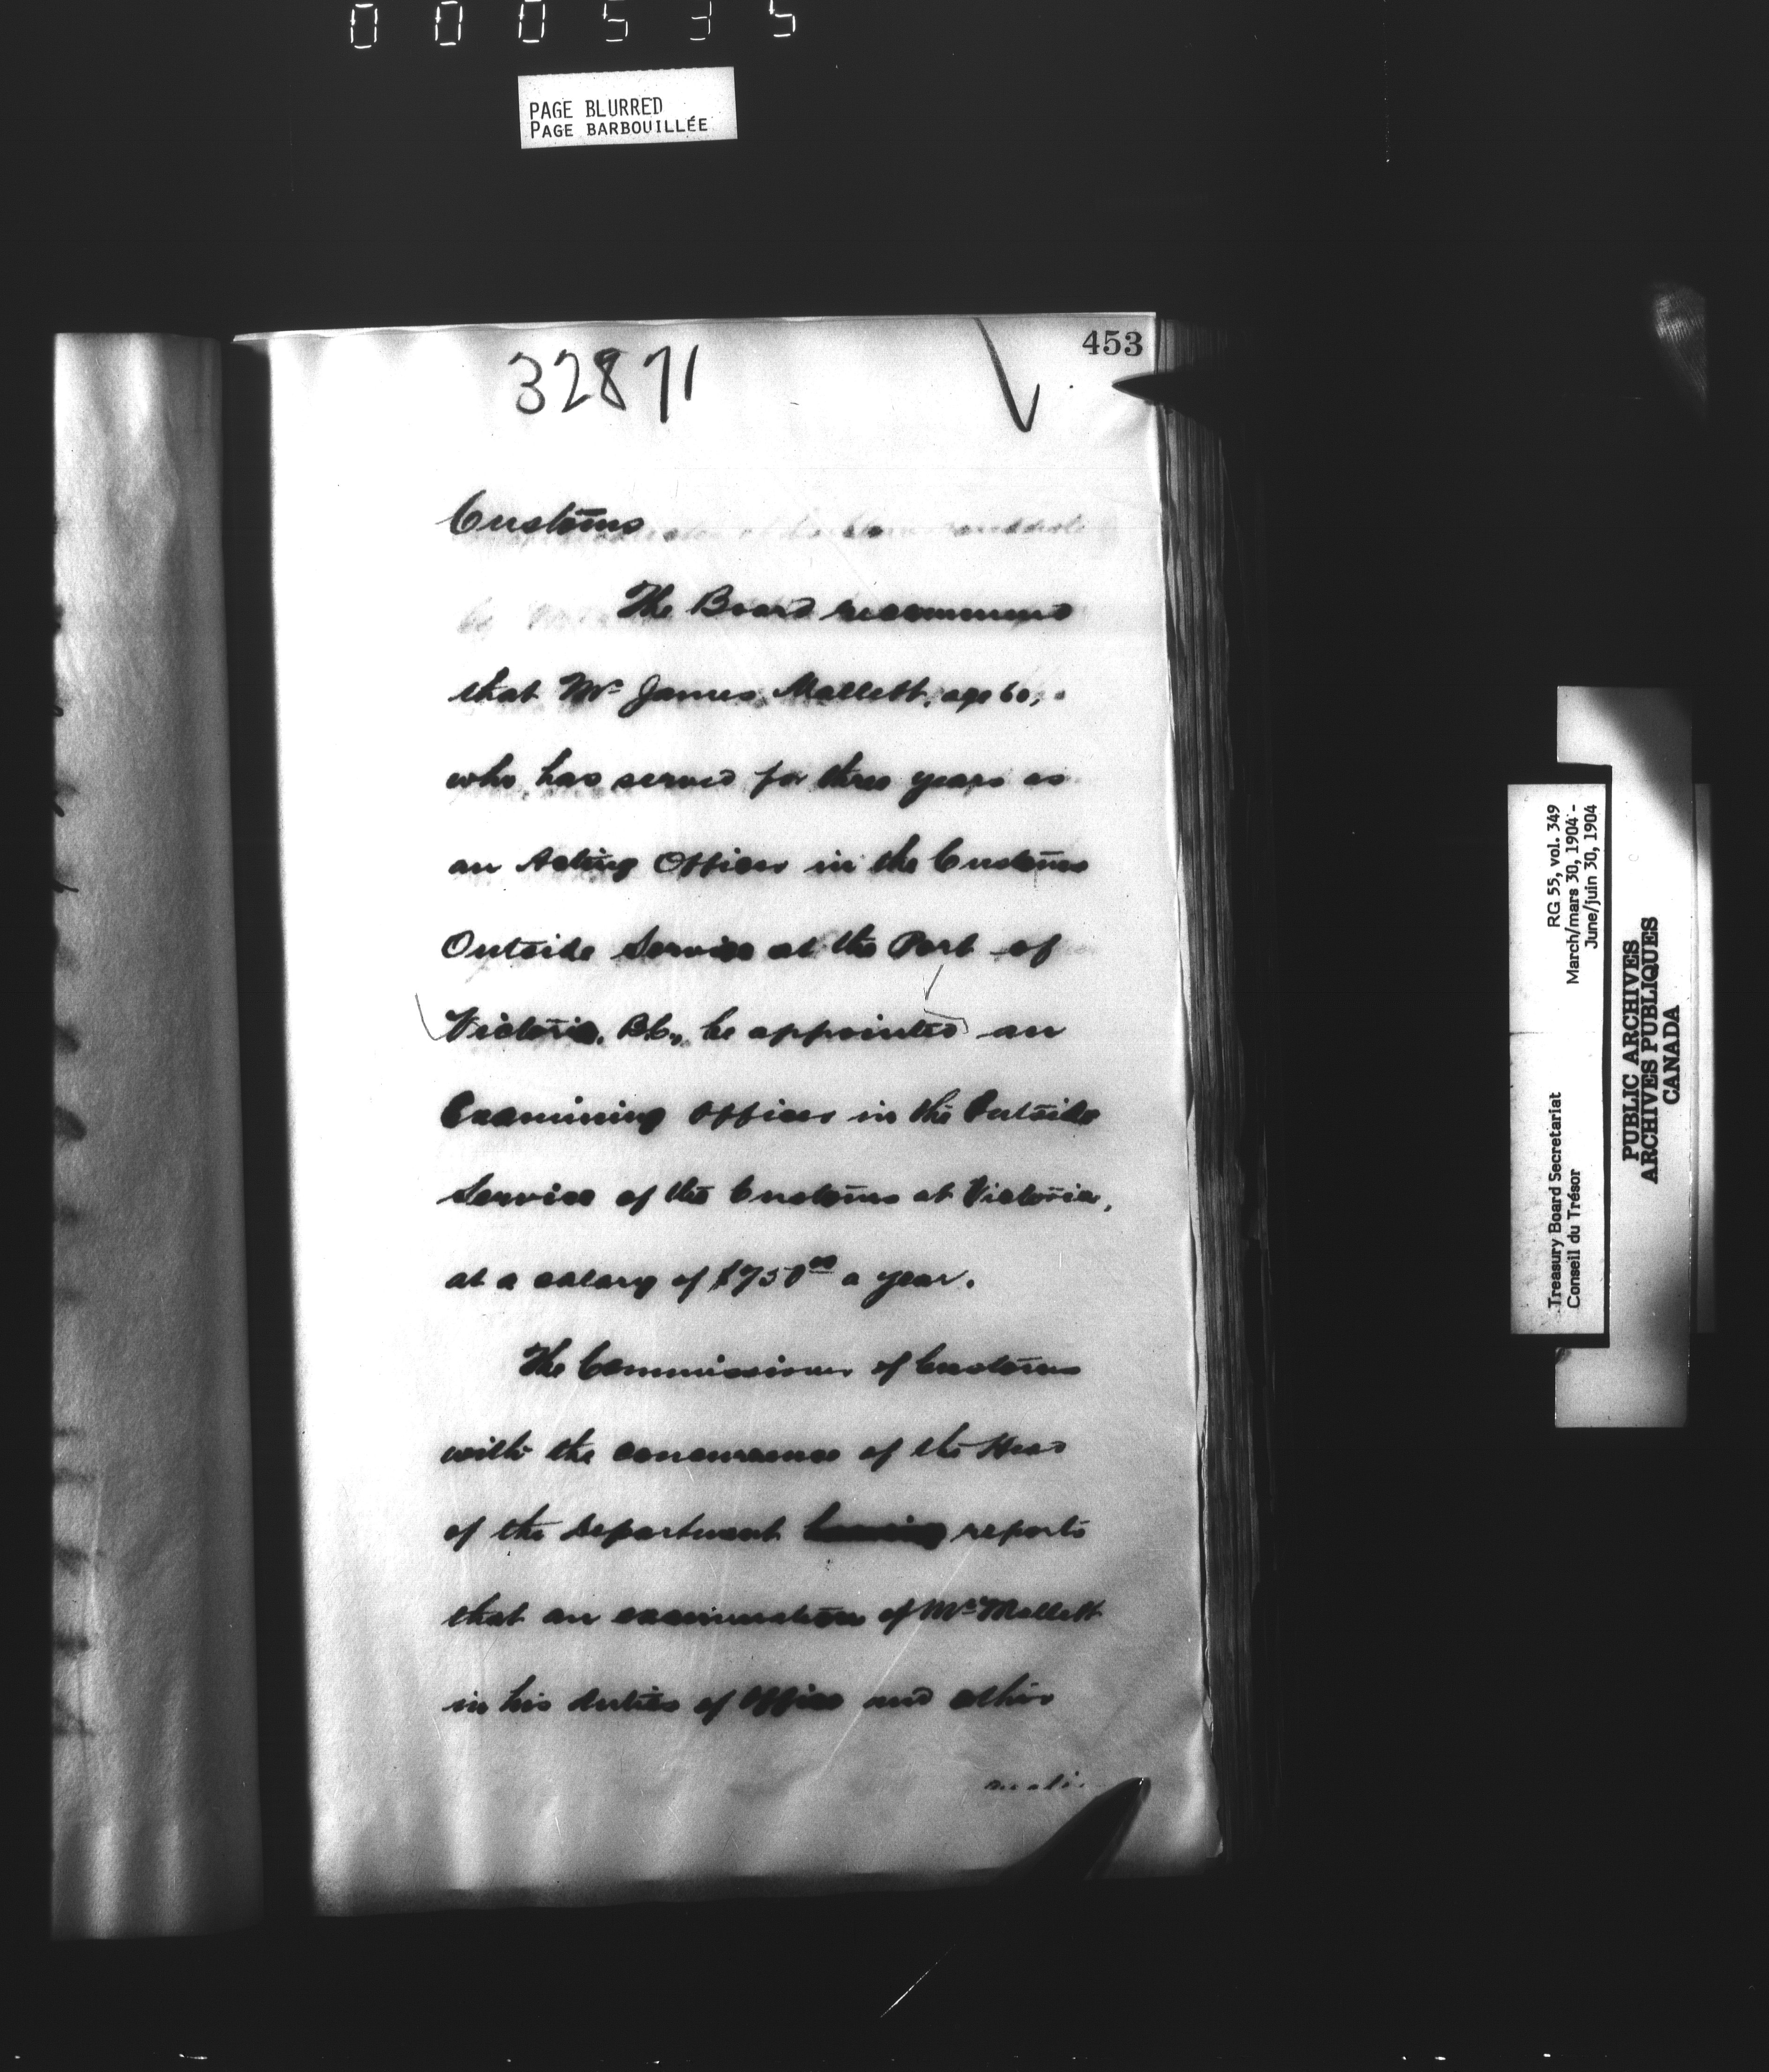 000535
PAGE BLURRED
PAGE BARBOUILLÉE
453
32871
Customs
The Board recommend
that Mr James Mallett, age 60,
who has served for three years as
an Acting Officer in the Customs
Outside Service at the Port of
Victoria, B.C., be appointed an
Examining Officer in the Outside
Service of the Customs at Victoria,
at a salary of $750 00 a year.
The Commissioner of Customs
with the concurrence of the Head
of the Department having reports
that an examination of Mr Mallett
in his duties of office and other
RG 55, vol. 349
March/mars 30, 1904 -
June/juin 30, 1904
Treasury Board Secretariat
Conseil du Trésor
PUBLIC ARCHIVES
ARCHIVES PUBLIQUES
CANADA